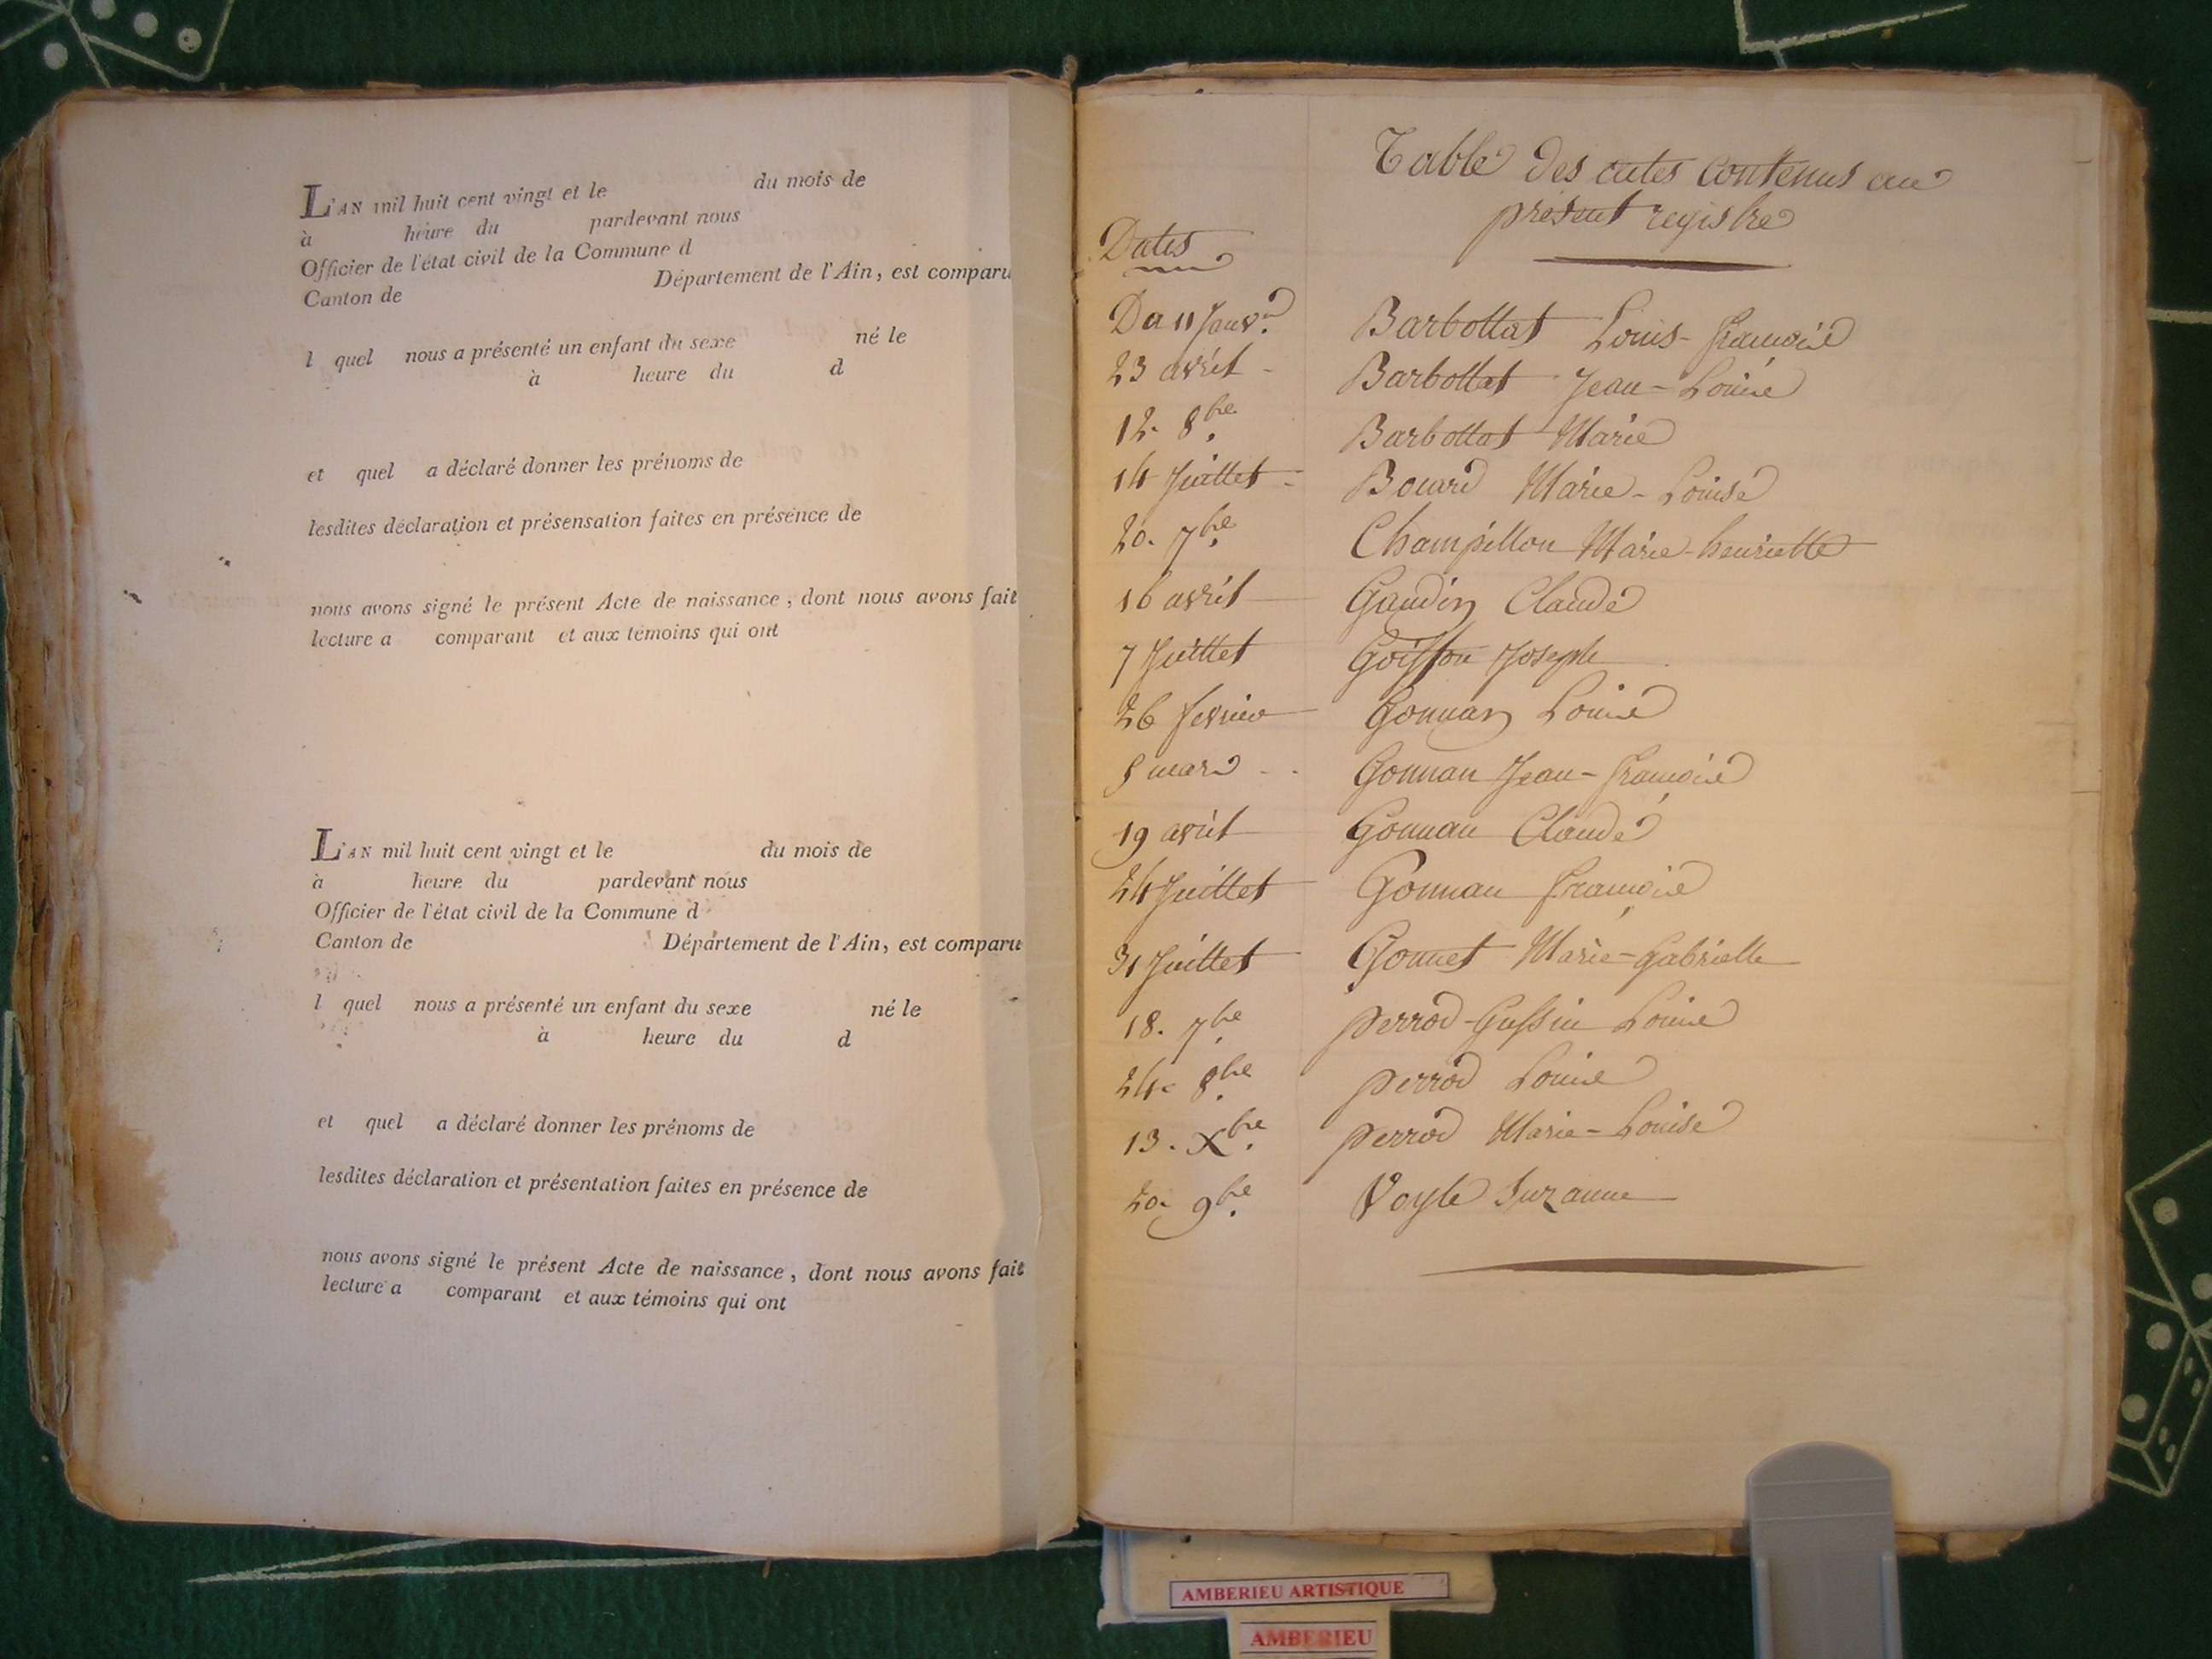 L'AN mil huit cent vingt et le du mois de
à heure du pardevant nous
Officier de l'état civil de la Commune d
Canton de Département de l'Ain, est comparu
l quel nous a présenté un enfant du sexe né le
à heure du d
et quel a déclaré donner les prénoms de
lesdites déclaration et présensation faites en présence de
nous avons signé le présent Acte de naissance, dont nous avons fait
lecture a comparant et aux témoins qui ont
L'AN mil huit cent vingt et le du mois de
à heure du pardevant nous
Officier de l'état civil de la Commune d
Canton de Département de l'Ain, est comparu
l quel nous a présenté un enfant du sexe né le
à heure du d
et quel a déclaré donner les prénoms de
lesdites déclaration et présentation faites en présence de
nous avons signé le présent Acte de naissance, dont nous avons fait
lecture a comparant et aux témoins qui ont
Table des actes contenus au
présent registre
Dates
Du 11 Janv.er Barbollat Louis-françois
23 avril - Barbollat Jean-Louis
12. 8bre Barbollat Marie
14 Juillet - Bouard Marie-Louise
20. 7bre Champillon Marie-henriette
16 avril Gaudin Claude
7 Juillet Goisson Joseph
26 fevrier Gonnan Louis
mars Gonnan Jean-françois
19 avril Gonnan Claude
24 Juillet Gonnan françois
31 Juillet Gonnet Marie-gabrielle
18. 7bre perrod- Louise
24. 8bre perrod Louise
13. Xbre perrod Marie-Louise
20. 9bre Voyle Suzanne
AMBERIEU ARTISTIQUE
AMBERIEU